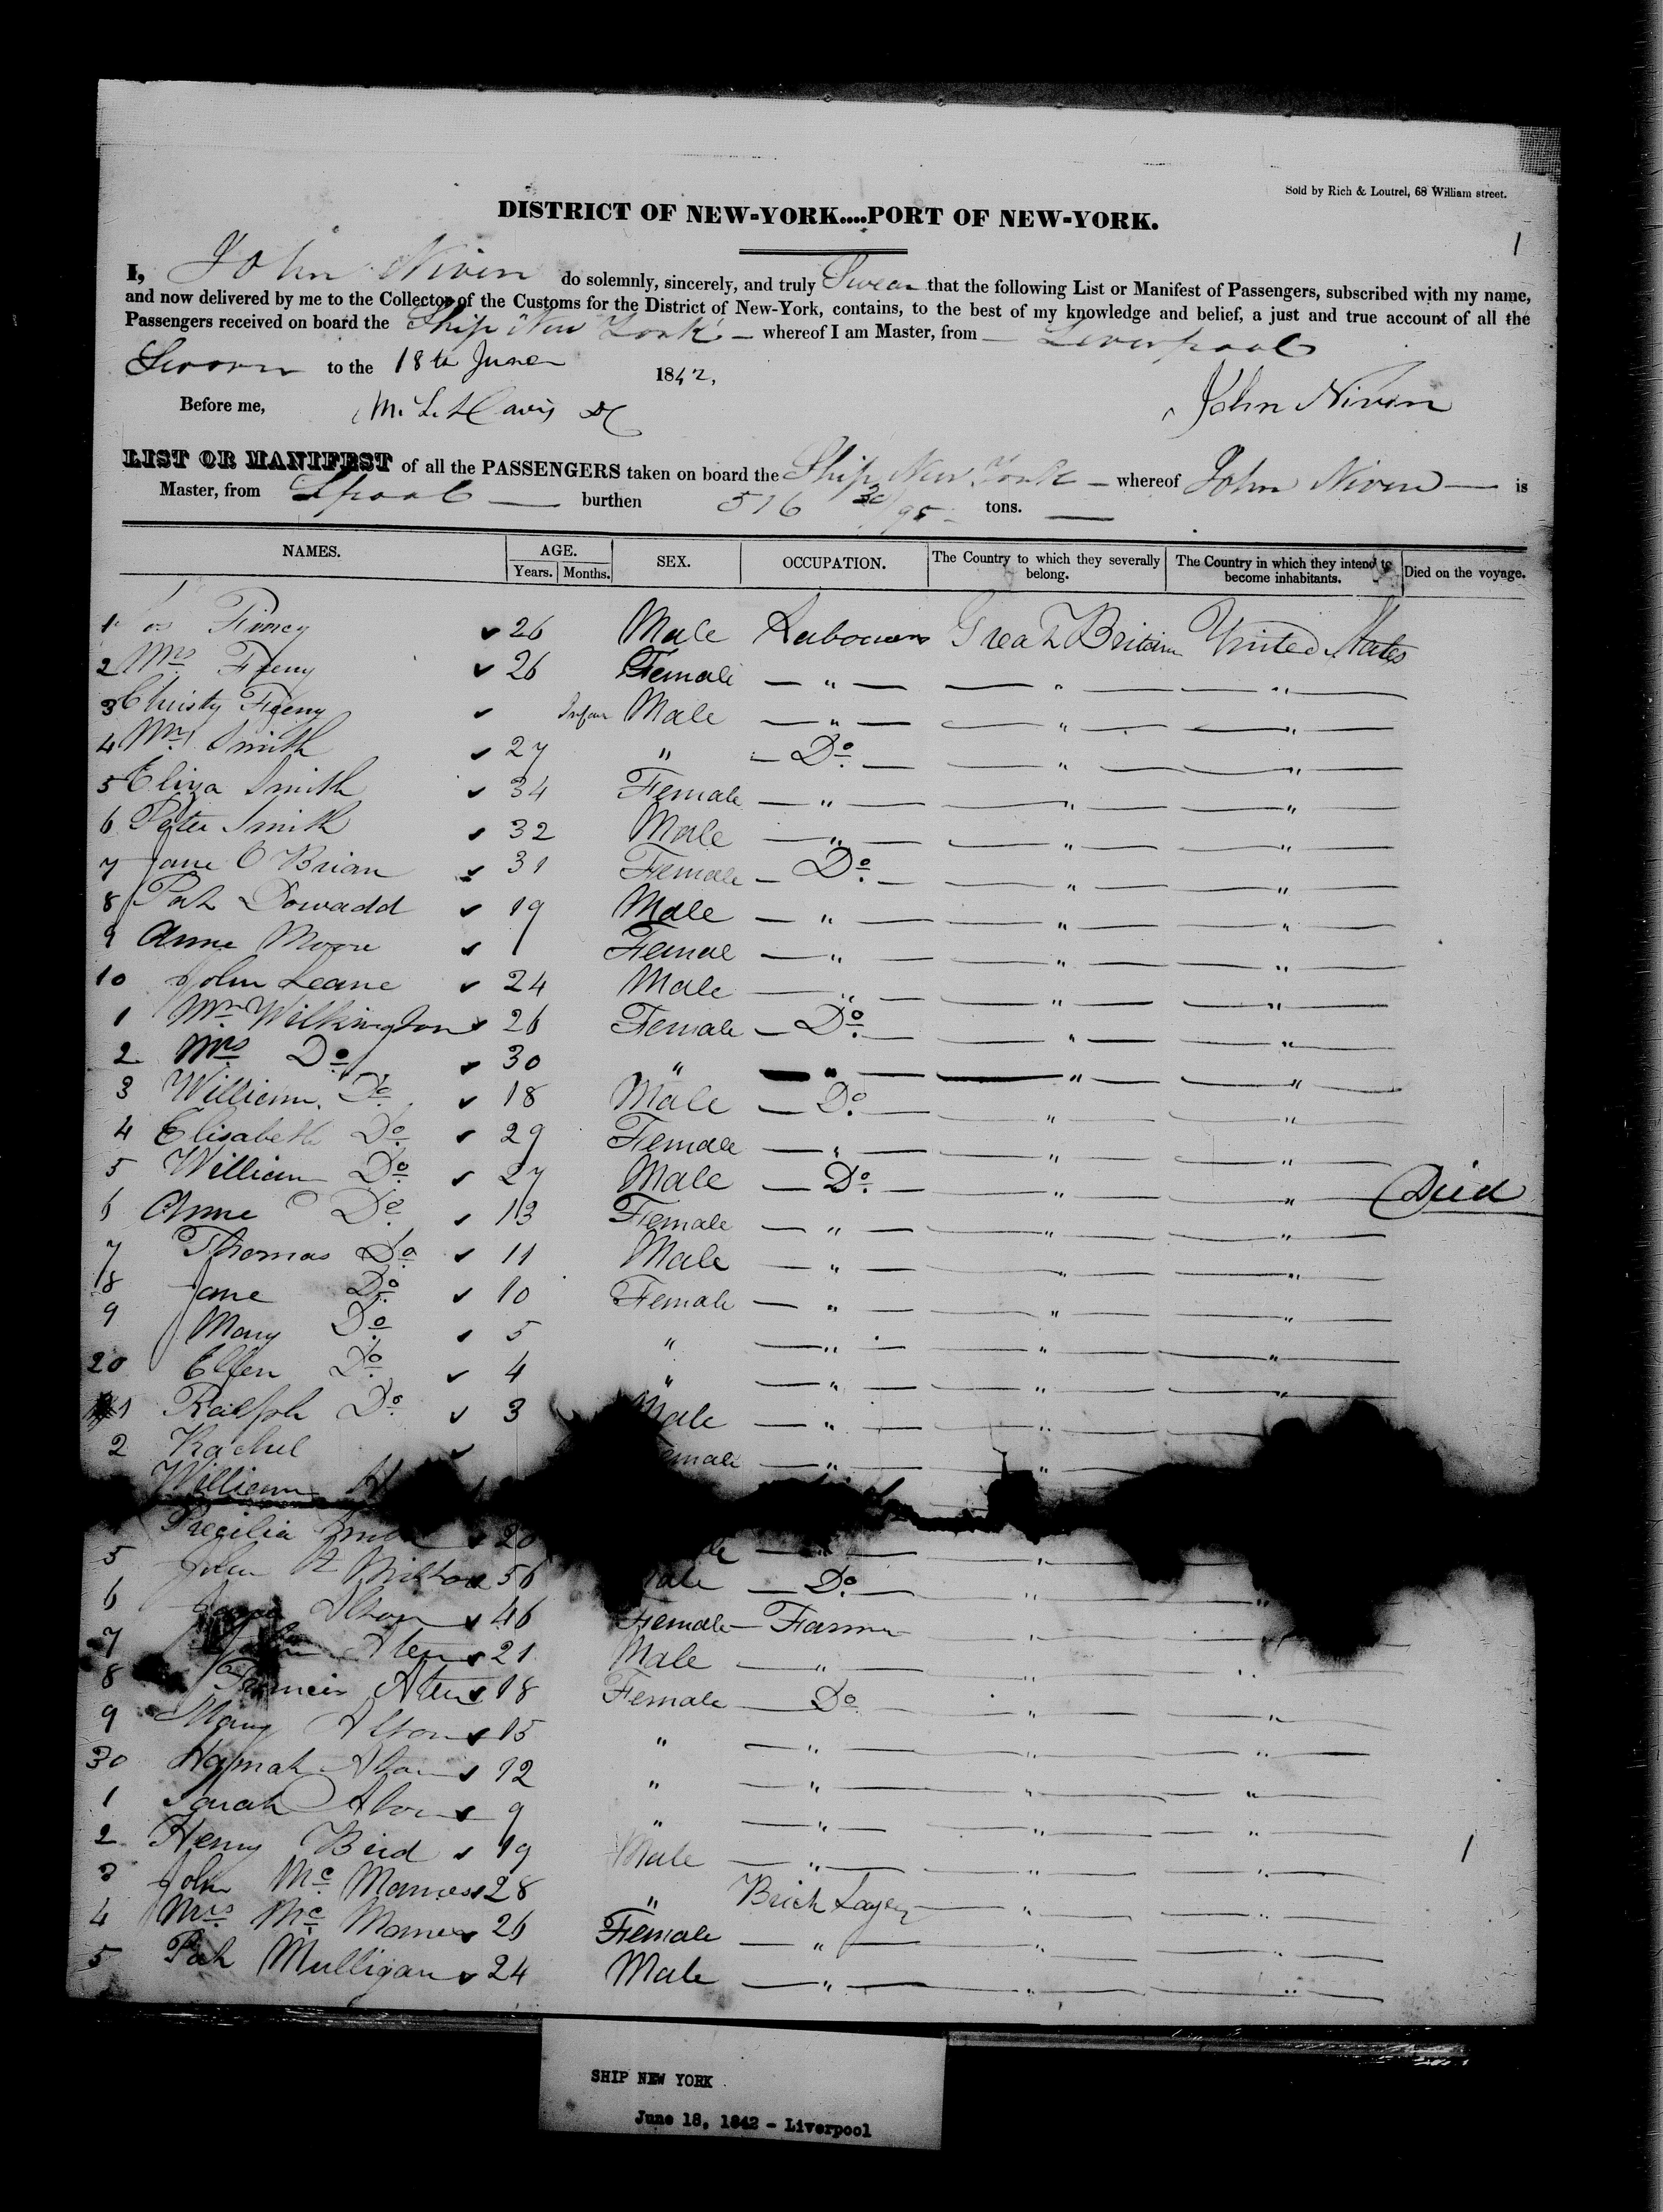 Sold by Rich & Loutrel, 68 William street.
DISTRICT OF NEW-YORK....PORT OF NEW-YORK.
1
I, John Niven do solemnly, sincerely, and truly Swear that the following List or Manifest of Passengers, subscribed with my name,
and now delivered by me to the Collector of the Customs for the District of New-York, contains, to the best of my knowledge and belief, a just and true account of all the
Passengers received on board the Ship New York — whereof I am Master, from — Liverpool
Sworn to the 18th June 1842,
Before me, M. L. Davis DC John Niven
LIST OR MANIFEST of all the PASSENGERS taken on board the Ship New York — whereof John Niven — is
Master, from Lpool — burthen 516 30/95 tons. —
NAMES. AGE. SEX. OCCUPATION. The Country to which they severally belong. The Country in which they intend to become inhabitants. Died on the voyage.
Years. Months.
1 26 Male Labourers Great Britain United States
2 Mrs 26 Female — " — — " — — " —
3 Christy Infan Male — " — — " — — " —
4 Mr Smith 27 " — Do. — — " — — " —
5 Eliza Smith 34 Female — " — — " — — " —
6 Peter Smith 32 Male — " — — " — — " —
7 Jane O Brian 31 Female — Do. — — " — — " —
8 Pat Dowadd 19 Male — " — — " — — " —
9 Anne Moore 1 Female — " — — " — — " —
10 John Leane 24 Male — " — — " — — " —
1 Mr Wilkington 26 Female — Do. — — " — — " —
2 Mrs Do. 30 " — " — — " — — " —
3 William Do. 18 Male — Do. — — " — — " —
4 Elisabeth Do. 29 Female — " — — " — — " —
5 William Do. 27 Male — Do. — — " — — " — Died
6 Anne Do. 13 Female — " — — " — — " —
7 Thomas Do. 11 Male — " — — " — — " —
18 Jane Do. 10 Female — " — — " — — " —
9 Mary Do. 5 " — " — — " — — " —
20 Ellen Do. 4 " — " — — " — — " —
1 Ralph Do. 3 Male — " — — " —
2 Rachel emale — " — — " —
William
20 le — " — — " —
5 John 56 ale — Do. — — " — "
6 46 Female — Farmer " "
7 21 Male — " — — " — "
8 Francis 18 Female — Do. — " — " —
9 Mary Alton 15 " — " — — " — — " —
30 Hannah 12 " — " — — " — — " —
1 Sarah 9 " — " — — " — — " —
2 Henry Bird 19 Male — " — — " — — " — 1
3 John Mc 28 " Brick Layer — " — — " —
4 Mrs Mc 26 Female — " — " — " —
5 Pat Mulligan 24 Male — " — " — " —
SHIP NEW YORK
June 18, 1842 - Liverpool